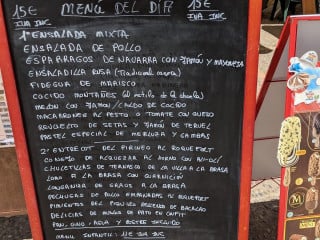 15€ MENÚ DEL DÍA 15€
IVA INC IVA INC.
1º ENSALADA MIXTA
ENSALADA DE POLLO
ESPARRAGOS DE NAVARRA CON JAMÓN Y MAYONESA
ENSALADILLA RUSA (Tradicional casera)
FIDEGUA DE MARISCO
COCIDO MONTAÑES (al estilo de la abuela)
MELON CON JAMON / CALDO DE COCIDO
MACARRONES AL PESTO O TOMATE CON QUESO
REVUELTO DE SETAS Y JAMÓN DE TERUEL
PASTEL ESPECIAL DE MERLUZA Y GAMBAS
2º ENTRECOT DEL PIRINEO AL ROQUEFORT
CONEJO DE ALQUEZAR AL HORNO CON ALI-OLI
CHULETILLAS DE TERNASCO DE LA VILLA A LA BRASA
LOMO A LA BRASA CON GUARNICIÓN
LONGANIZA DE GRAUS A LA BRASA
PECHUGAS DE POLLO EMPANADAS AL ROQUEFORT
PIMIENTOS DEL PIQUILLO RELLENOS DE BACALAO
DELICIAS DE MUSLO DE PATO CONFIT
PAN, VINO, AGUA Y POSTRE INCLUIDO
MENU INFANTIL: 11€ IVA INC